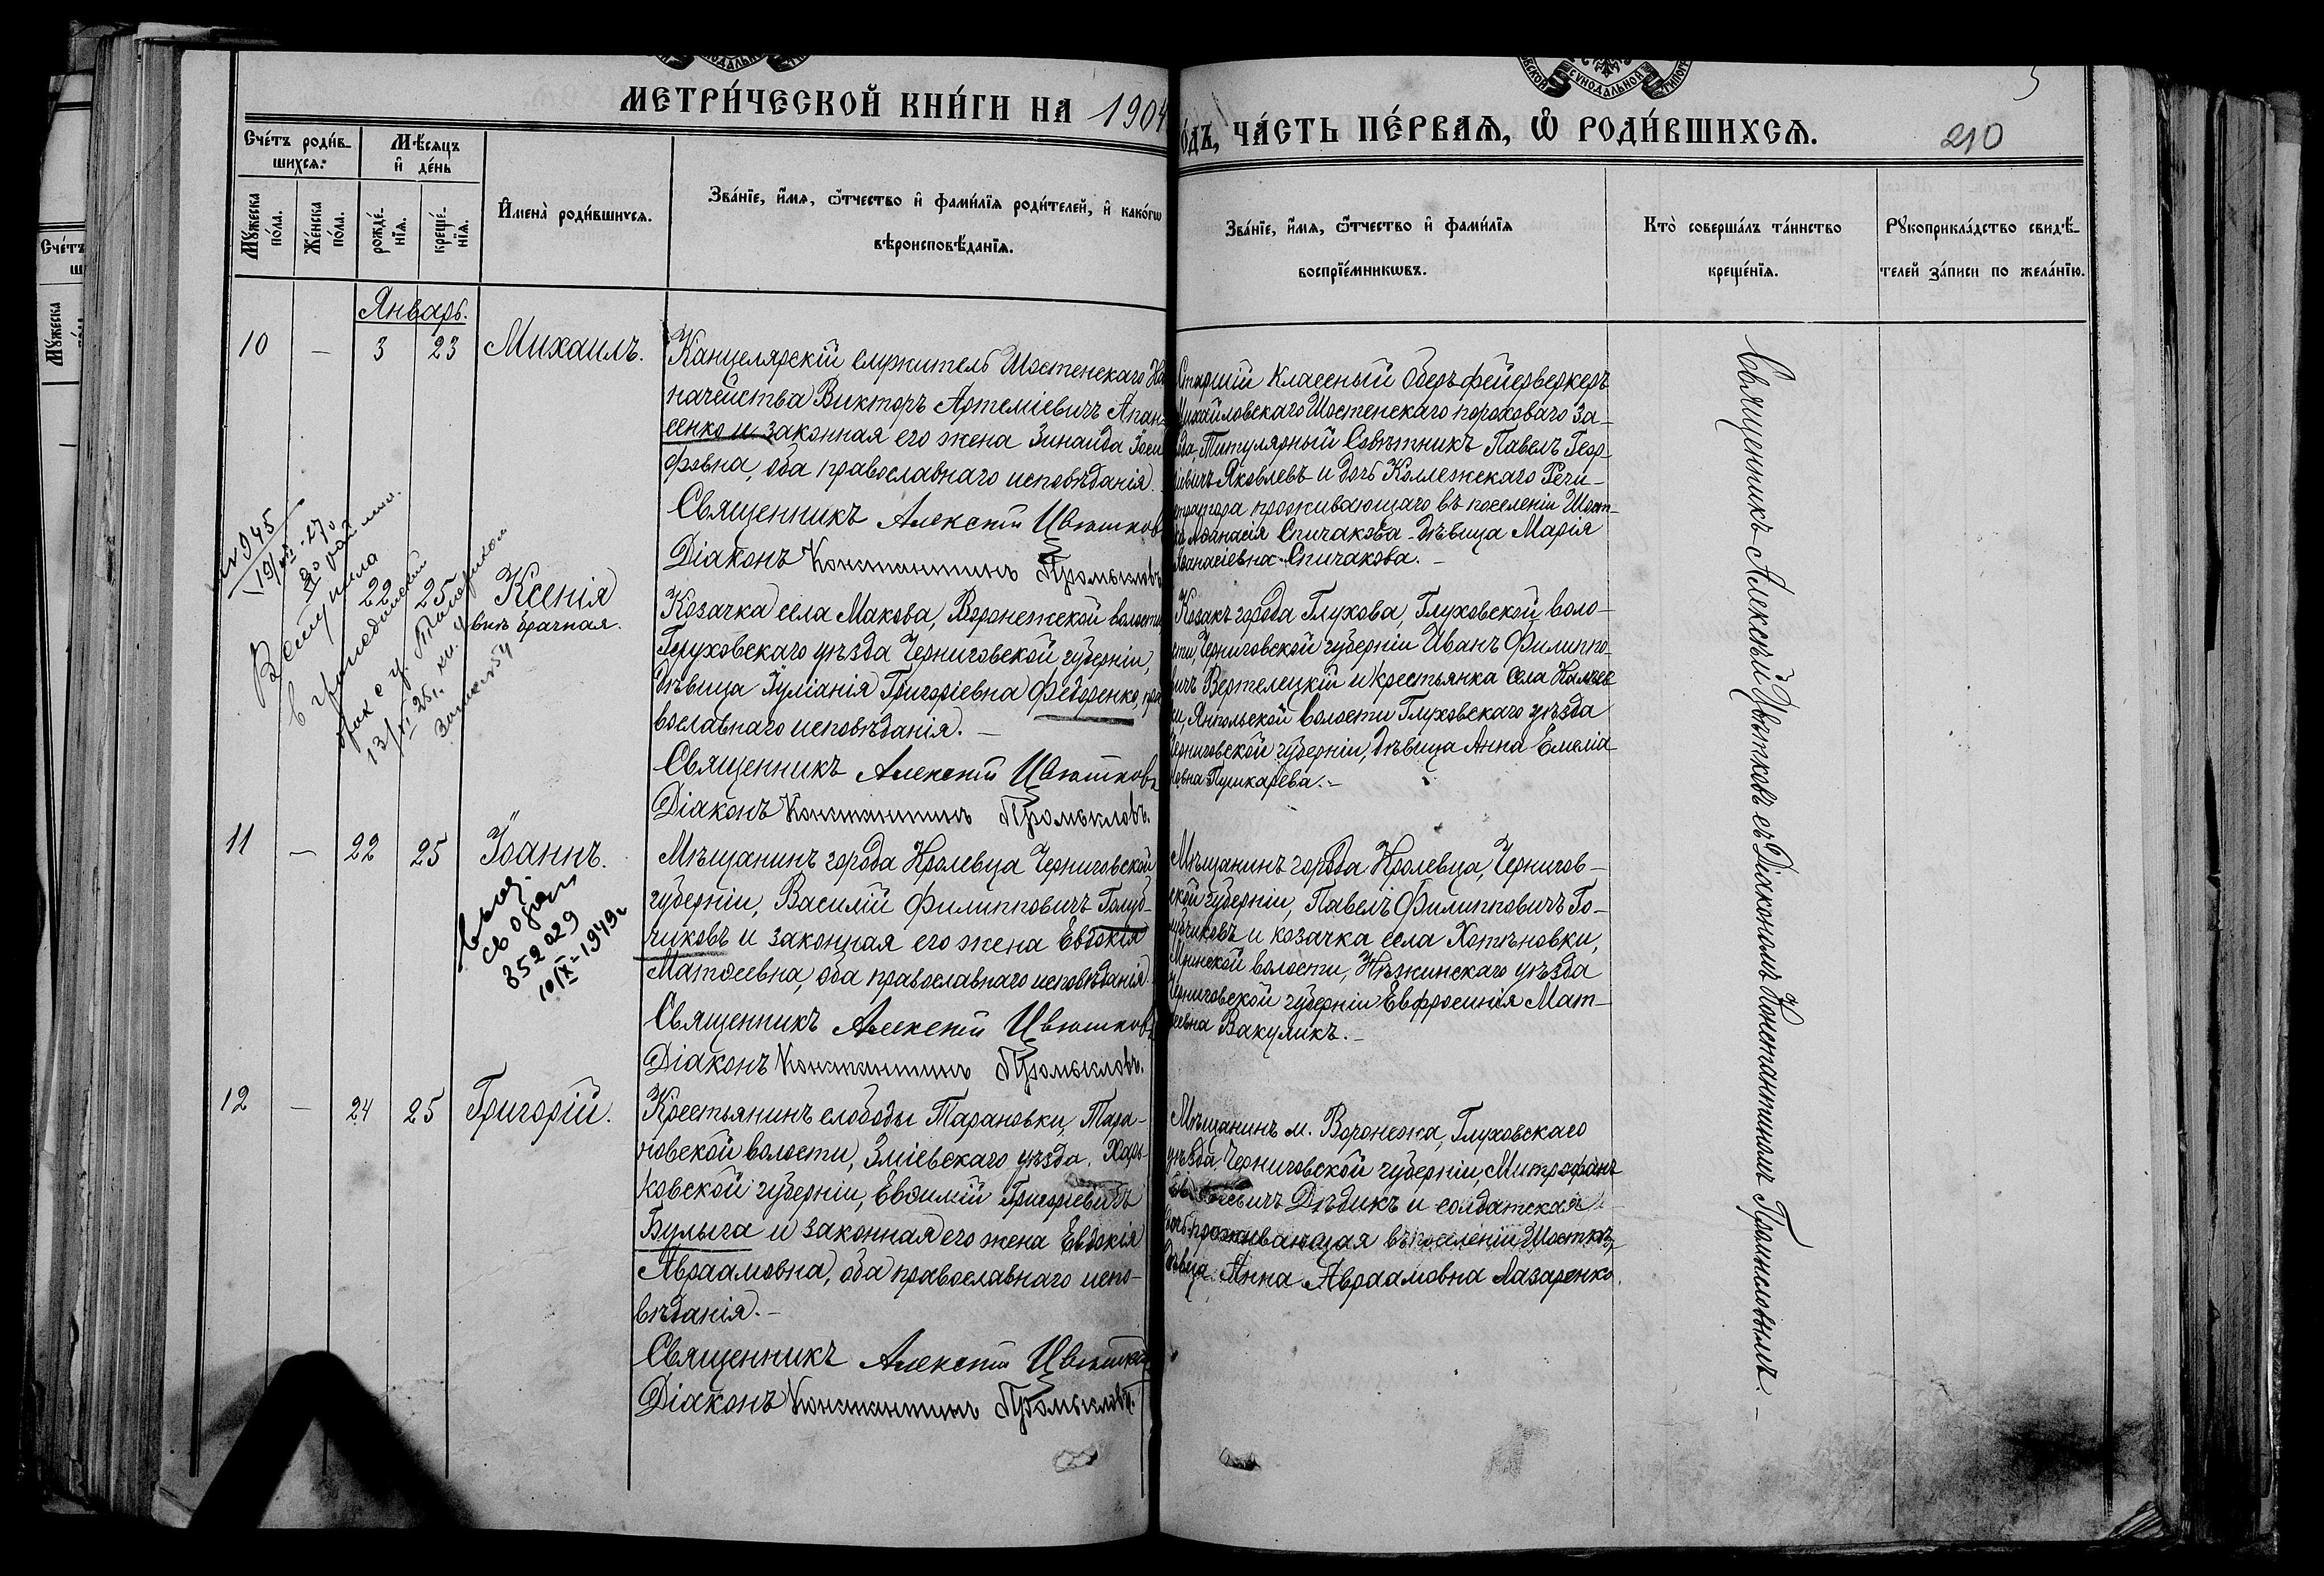 МЕТРИ́ЧЕСКОЙ КНИ́ГИ НА 1904
о́дъ, ЧА́СТЬ ПЕ́РВАѦ, Ѽ РОДИ́ВШИХСѦ.
5
210
Сче́тъ роди́в-
шихсѧ.
Мѣ́сѧцъ
и҆ де́нь
Мꙋ́жеска
по́ла.
Же́нска
по́ла.
рожде́-
нїѧ.
креще́-
нїѧ.
И҆мена̀ роди́вшихсѧ.
Зва́нїе, и҆́мѧ, ѻ҆́тчество и҆ фами́лїѧ роди́телей, и҆ како́гѡ
вѣроисповѣ́данїѧ.
Зва́нїе, и҆́мѧ, ѻ҆́тчество и҆ фами́лїѧ
воспрїе́мникѡвъ.
Кто̀ соверша́лъ та́инство
креще́нїѧ.
Рꙋкоприкла́дство свидѣ́-
телей за́писи по жела́нїю.
Январь.
10 — 3 23 Михаилъ.
Канцелярскій служитель Шостенскаго Ка
начейства Викторъ Артеміевичъ Апана
сенко и законная его жена Зинаида Іоси
фовна, оба православнаго исповѣданія.
Священникъ Алексѣй Цвѣтковъ
Діаконъ Константинъ Промысловъ
Старшій классный Оберъ-фейерверкеръ
Михайловскаго Шостенскаго пороховаго за-
вода, Титулярный Совѣтникъ Павелъ Геор-
гіевичъ Яковлевъ и дочь Коллежскаго Реги-
стратора проживающаго въ поселеніи Шост-
кѣ Аѳанасія Спичакова - дѣвица Марія
Аѳанасіевна Спичакова. —
№ 945
Вступила
в гражданский
брак с гр.
22 25 Ксенія
внѣ брачная.
Козачка села Макова, Воронежской волости
Глуховскаго уѣзда Черниговской губерніи,
дѣвица Іуліанія Григоріевна Федоренко, пра
вославнаго исповѣданія. —
Священникъ Алексѣй Цвѣтковъ
Діаконъ Константинъ Промысловъ.
Козакъ города Глухова, Глуховской воло-
сти, Черниговской губерніи Иванъ Филиппо-
вичъ Вертелецкій и крестьянка села
Ямпольской волости Глуховскаго уѣзда
Черниговской губерніи, дѣвица Анна Емелiа-
новна Пушкарева. —
11 — 22 25 Іоаннъ.
выд.
св огрн
852029
10/IX-1949г
Мѣщанинъ города Кролевца Черниговской
губерніи, Василій Филипповичъ Голуб-
чиковъ и законная его жена Евдокія
Матѳеевна, оба православнаго исповѣданія.
Священникъ Алексѣй Цвѣтковъ
Діаконъ Константинъ Промысловъ.
Мѣщанинъ города Кролевца, Чернигов-
ской губерніи, Павелъ Филипповичъ Го-
лубчиковъ и козачка села Хотѣновки,
Мринской волости, Нѣжинскаго уѣзда
Черниговской губерніи Евфросинія Мат-
ѳеевна Вакуликъ. —
12 — 24 25 Григорій.
Крестьянинъ слободы Тарановки, Тара-
новской волости, Зміевскаго уѣзда, Харь-
ковской губерніи, Евѳимій Григоріевичъ
Булыга и законная его жена Евдокія
Авраамовна, оба православнаго испо-
вѣданія. —
Священникъ Алексѣй Цвѣтковъ
Діаконъ Константинъ Промысловъ.
Мѣщанинъ м. Воронежа, Глуховскаго
уѣзда Черниговской губерніи, Митрофанъ
Дѣдикъ и солдатская
дочь проживающая въ поселеніи Шосткѣ,
дѣвица Анна Авраамовна Лазаренко.
Священникъ Алексѣй Цвѣтковъ съ Діакономъ Константиномъ Промысловымъ. —